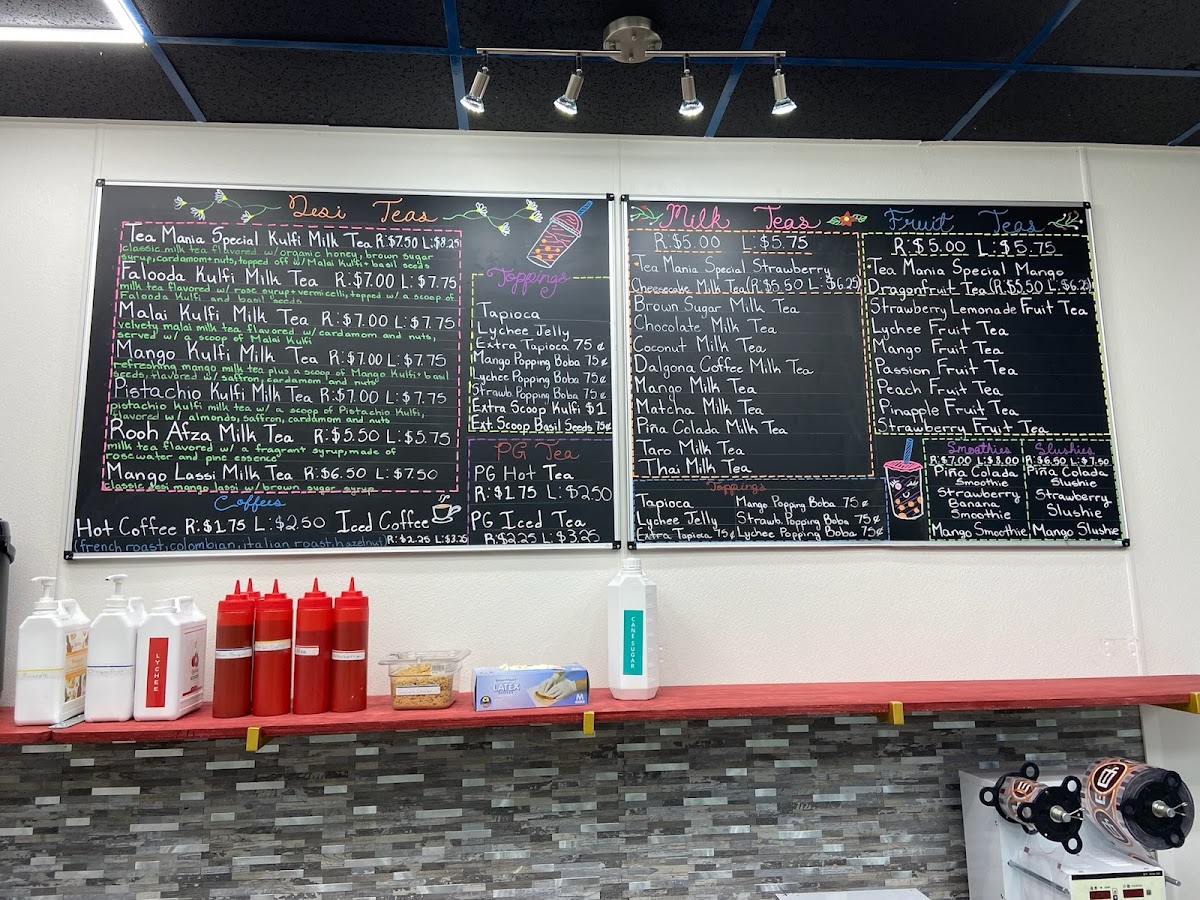 Desi Teas
Tea Mania Special Kulfi Milk Tea R:$7.50 L:$8.25
classic milk tea flavored w/organic honey, brown sugar
syrup, cardamom+nuts, topped off w/Malai Kulfi+ basil seeds
Falooda Kulfi Milk Tea R:$7.00 L:$7.75
milk tea flavored w/ rose syrup+vermicelli, topped w/ a scoop of
Falooda Kulfi and basil seeds
Malai Kulfi Milk Tea R:$7.00 L:$7.75
velvety malai milk tea flavored w/ cardamom and nuts,
served w/ a scoop of Malai Kulfi
Mango Kulfi Milk Tea R:$7.00 L:$7.75
refreshing mango milk tea plus a scoop of Mango Kulfi+ basil
seeds, flavored w/ saffron, cardamom and nuts
Pistachio Kulfi Milk Tea R:$7.00 L:$7.75
pistachio kulfi milk tea w/ a scoop of Pistachio Kulfi,
flavored w/ almonds, saffron, cardamom and nuts
Rooh Afza Milk Tea R:$5.50 L:$5.75
milk tea flavored w/ a fragrant syrup, made of
rose water and pine essence
Mango Lassi Milk Tea R:$6.50 L:$7.50
classic desi mango lassi w/ brown sugar syrup
Coffees
Hot Coffee R:$1.75 L:$2.50 Iced Coffee
(french roast, colombian, italian roast, hazelnut) R:$2.25 L:$3.25
Toppings
Tapioca
Lychee Jelly
Extra Tapioca 75¢
Mango Popping Boba 75¢
Lychee Popping Boba 75¢
Strawb. Popping Boba 75¢
Extra Scoop Kulfi $1
Ext. Scoop Basil Seeds 75¢
PG Tea
PG Hot Tea
R:$1.75 L:$2.50
PG Iced Tea
R:$2.25 L:$3.25
Milk Teas
R:$5.00 L:$5.75
•Tea Mania Special Strawberry
Cheesecake Milk Tea (R:$5.50 L:$6.25)
Brown Sugar Milk Tea
Chocolate Milk Tea
Coconut Milk Tea
Dalgona Coffee Milk Tea
Mango Milk Tea
Matcha Milk Tea
Piña Colada Milk Tea
Taro Milk Tea
Thai Milk Tea
Toppings
Tapioca Mango Popping Boba 75¢
Lychee Jelly Strawb. Popping Boba 75¢
Extra Tapioca 75¢ Lychee Popping Boba 75¢
Fruit Teas
R:$5.00 L:$5.75
•Tea Mania Special Mango
Dragonfruit Tea (R:$5.50 L:$6.25)
Strawberry Lemonade Fruit Tea
Lychee Fruit Tea
Mango Fruit Tea
Passion Fruit Tea
Peach Fruit Tea
Pinapple Fruit Tea
Strawberry Fruit Tea
Smoothies
R:$7.00 L:$8.00
Piña Colada
Smoothie
Strawberry
Banana
Smoothie
Mango Smoothie
Slushies
R:$6.50 L:$7.50
Piña Colada
Slushie
Strawberry
Slushie
Mango Slushie
LYCHEE
LATEX
M
CANE SUGAR